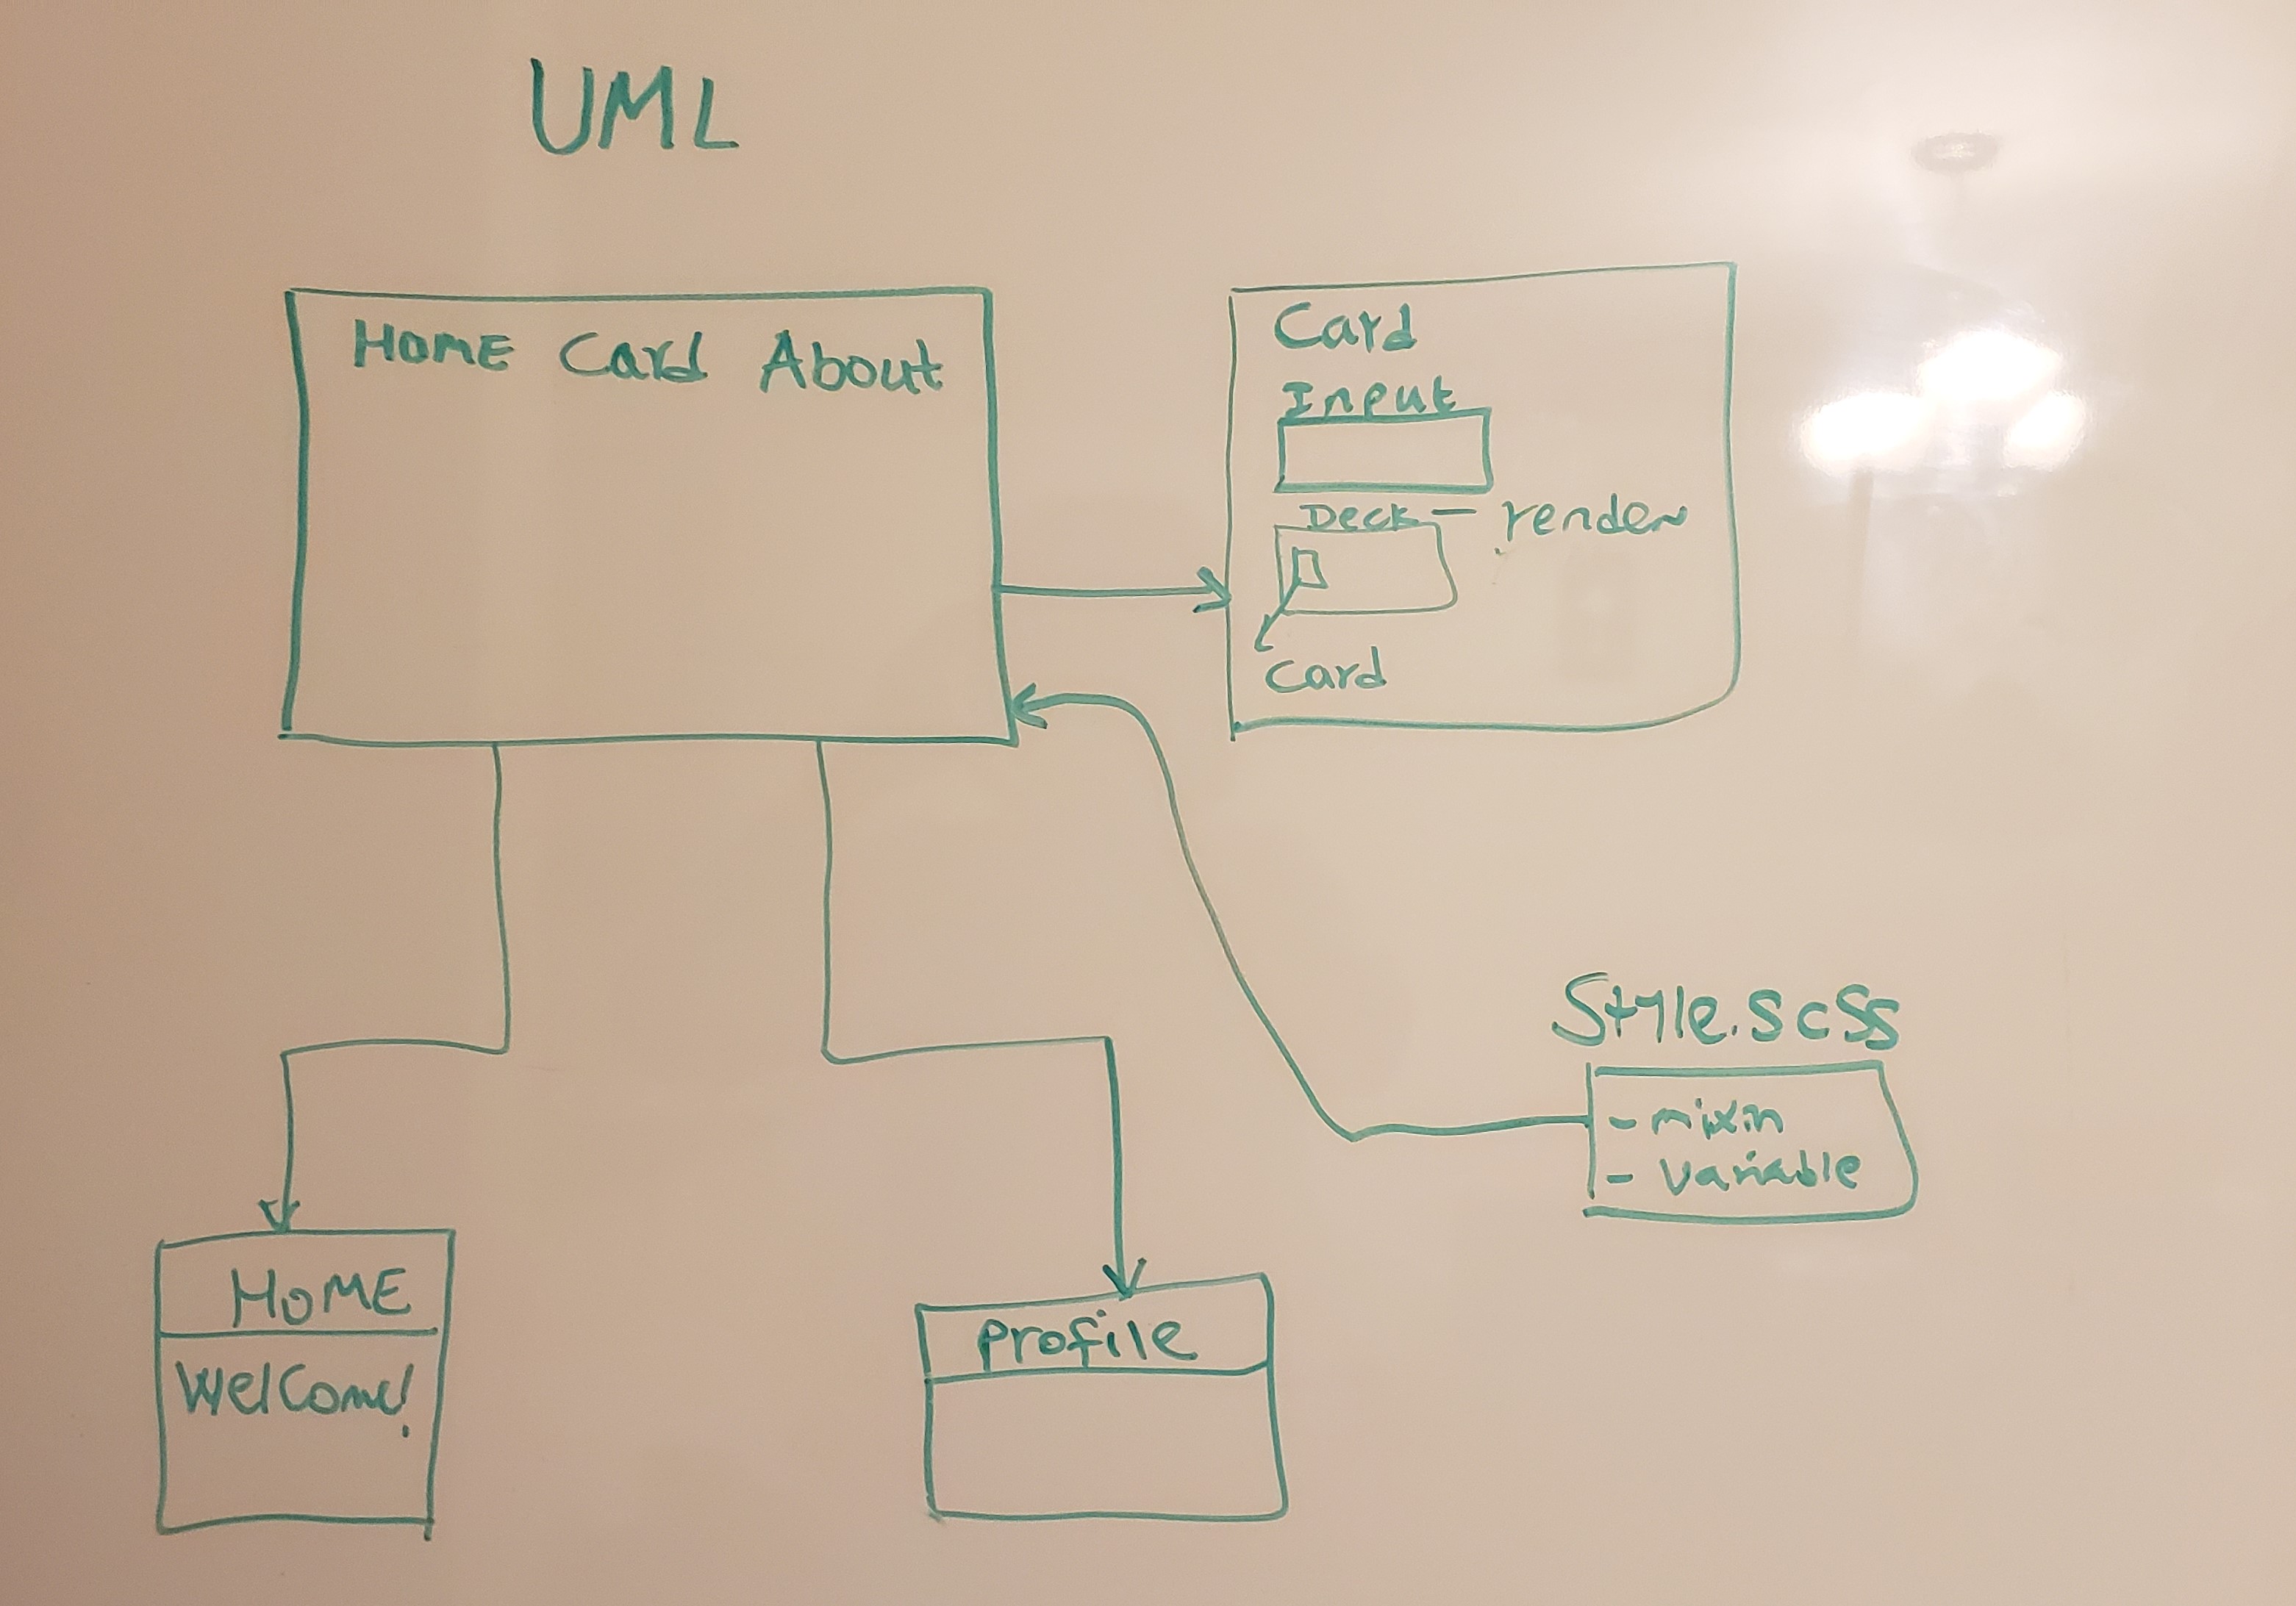 UML
HOME Card About
Card
Input
Deck - render
Card
Style.scss
- mixin
- Variable
HOME
Welcome!
Profile